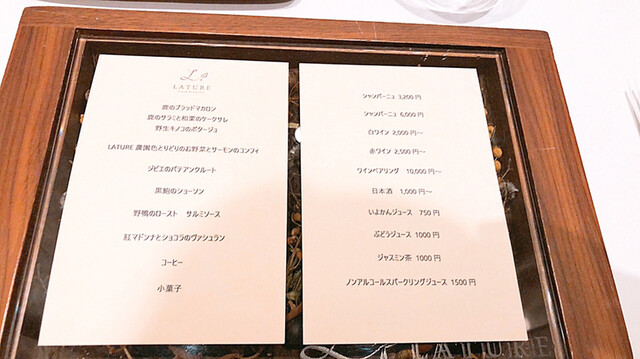 LATURE
鹿のブラッドマカロン
鹿のサラミと和栗のケークサレ
野生キノコのポタージュ
LATURE 農園色とりどりの若野菜とサーモンのコンフィ
ジビエのパテアンクルート
黒鮑のショーソン
野鴨のロースト サルミソース
紅マドンナとショコラのヴァシュラン
コーヒー
小菓子
シャンパーニュ 3,200 円
シャンパーニュ 6,000 円
白ワイン 2,000 円～
赤ワイン 2,500 円～
ワインペアリング 10,000 円～
日本酒 1,000 円～
いよかんジュース 750 円
ぶどうジュース 1000 円
ジャスミン茶 1000 円
ノンアルコールスパークリングジュース 1500 円
LATURE